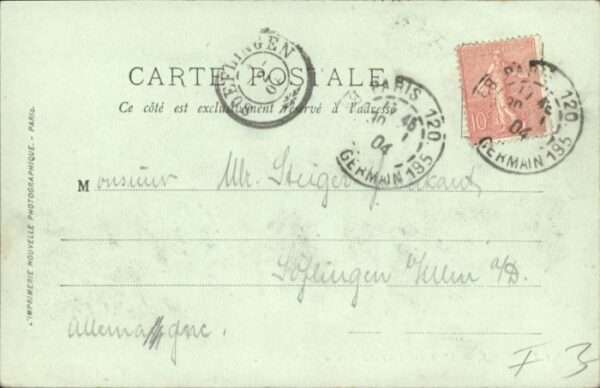 CARTE POSTALE
Ce côté est exclusivement réservé à l'adresse
PARIS 120
45
04
GERMAIN 195
PARIS 120
45
04
GERMAIN 195
10
Monsieur Mr. Steiger
Söflingen Ulm a/D.
Allemagne.
L'IMPRIMERIE NOUVELLE PHOTOGRAPHIQUE - PARIS.
F 3